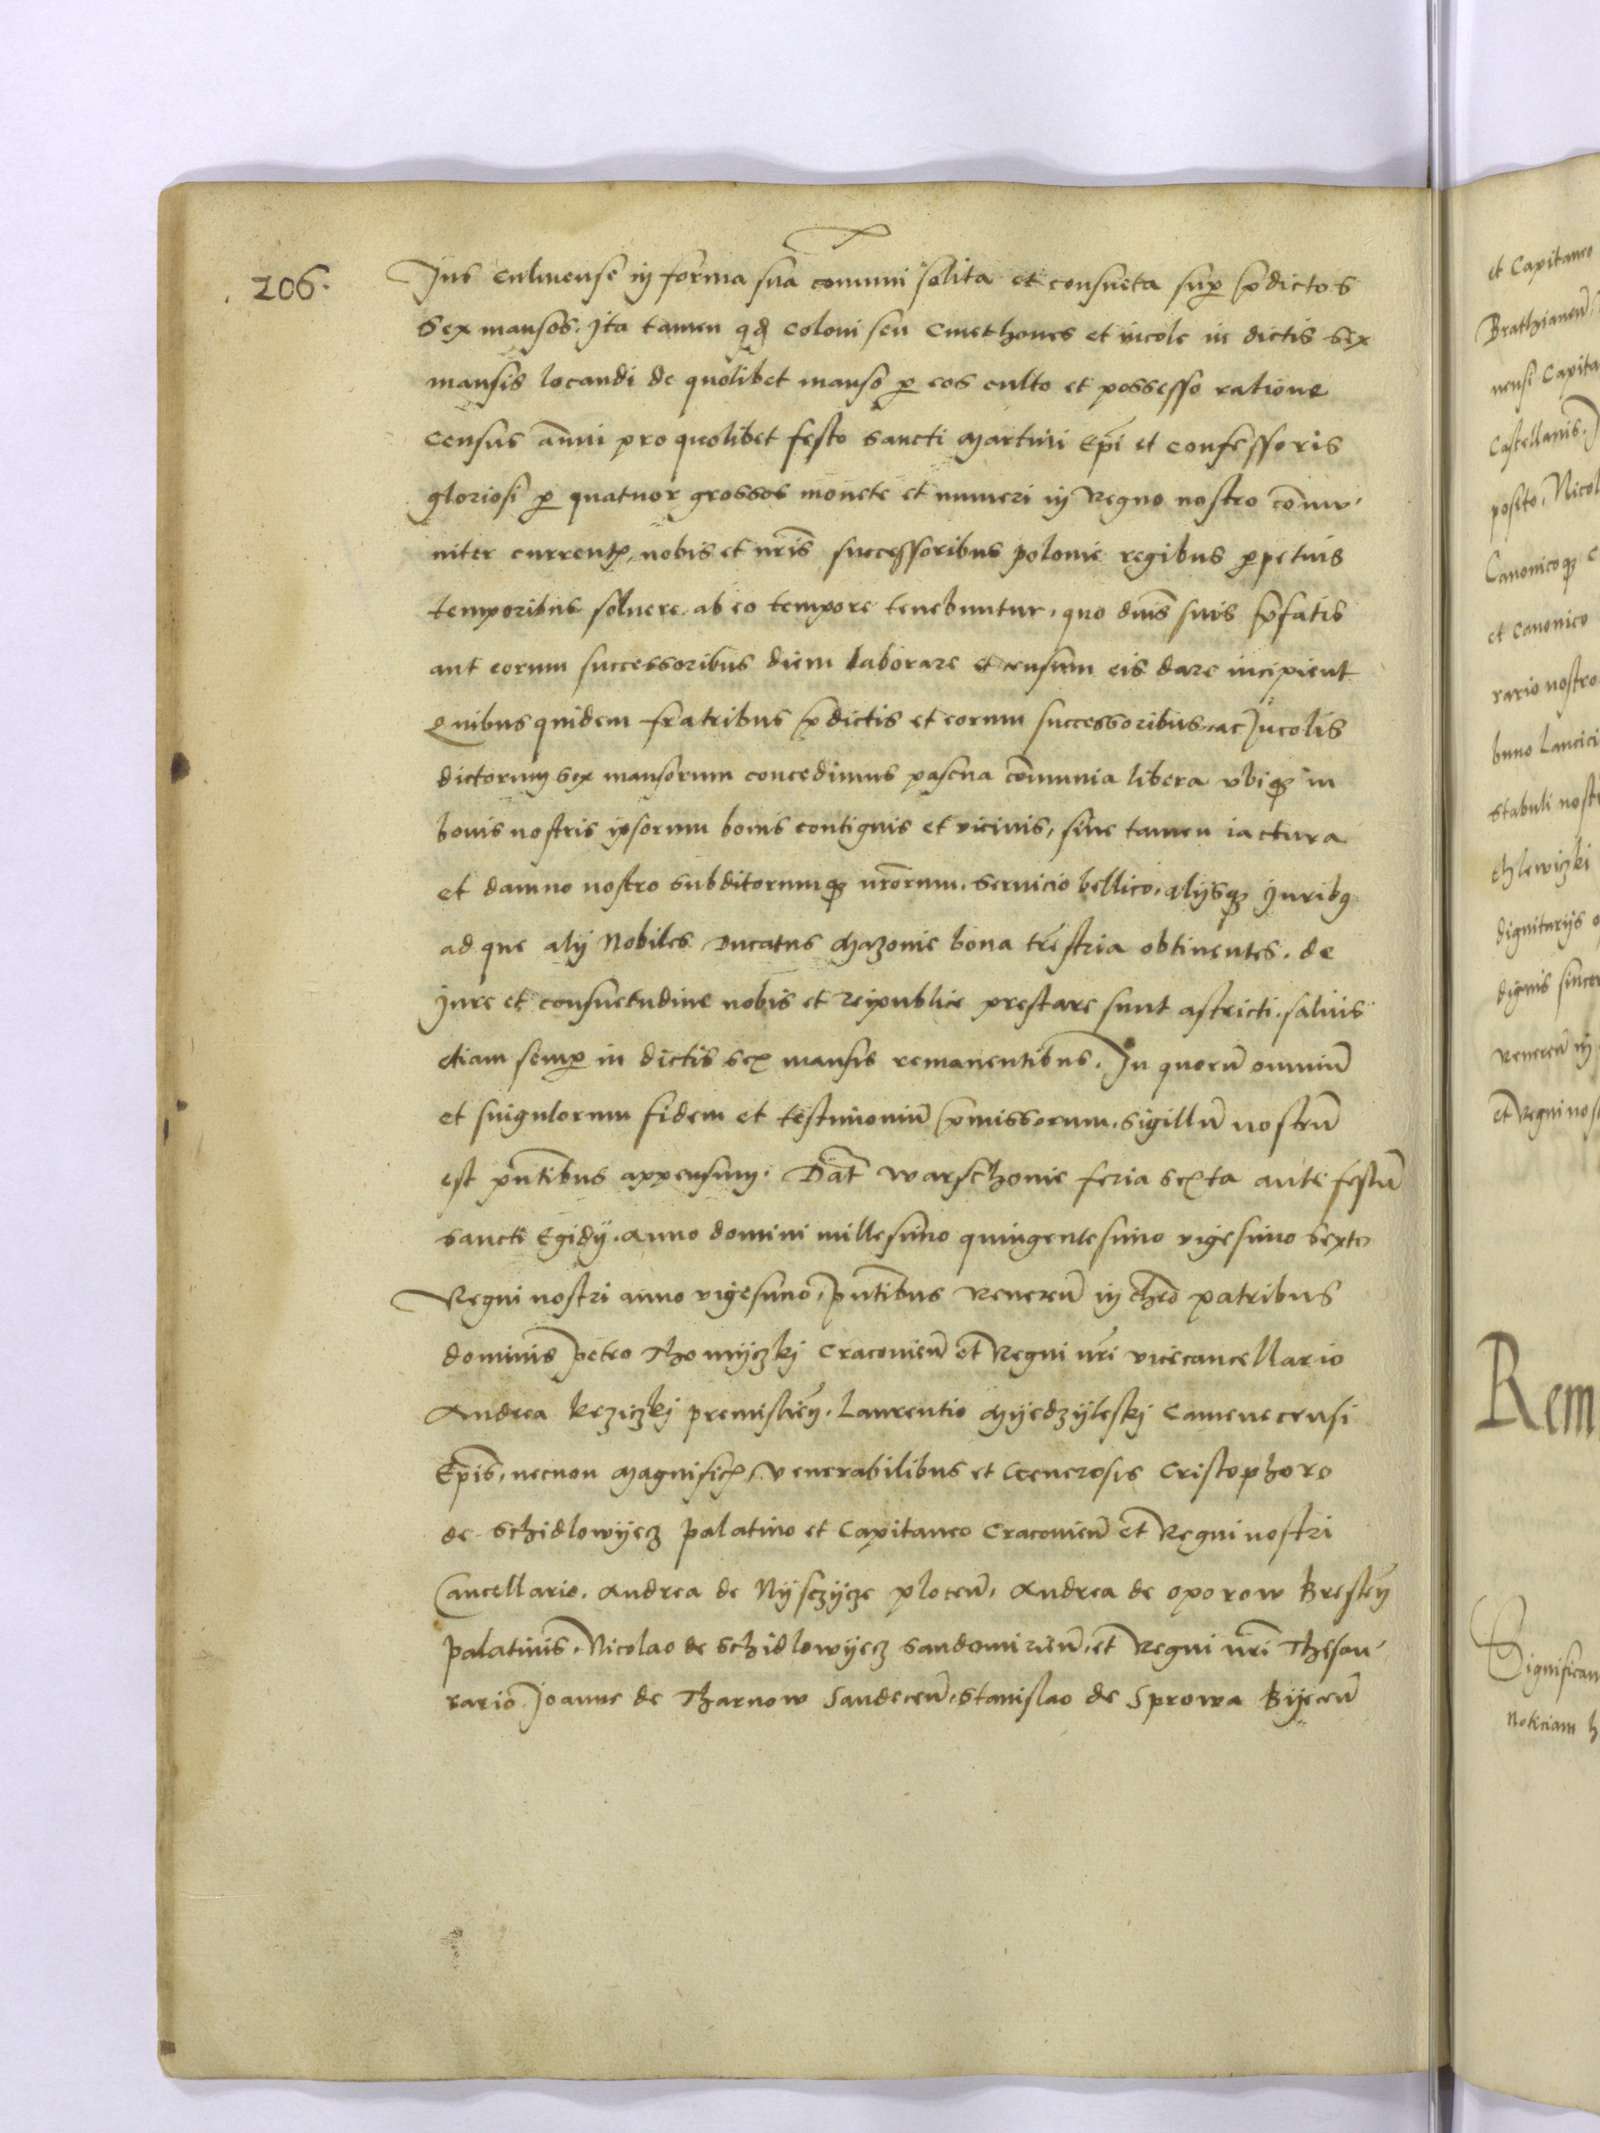 206.
Jus culmense in forma sua comuni solita et consueta sup pdictos
sex mansos. Ita tamen qd coloni seu cmethones et incole in dictis sex
mansis locandi de quolibet manso p eos culto et possesso ratione
census anui pro quolibet festo sancti Martini Epi et confessoris
gloriosi p quatuor grossos monete et numeri in Regno nostro comu-
niter current, nobis et nris successoribus polonie regibus ppetuis
temporibus soluere ab eo tempore tenebuntur, quo dnis suis pfatis
aut eorum successoribus diem laborare et censum eis dare incipient
Quibus quidem fratribus pdictis et eorum successoribus, ac Incolis
dictorum sex mansorum concedimus pascua comunia libera vbiq in
bonis nostris ipsorum bonis contiguis et vicinis, sine tamen iactura
et damno nostro subditorumq nrorum, seruicio bellico, alijsq Juribq
ad que alij Nobiles Ducatus Mazouie bona trestria obtinentes, de
Jure et consuetudine nobis et reipublice prestare sunt astricti, saluis
etiam semp in dictis sex mansis remanentibus. In quoru omniu
et singulorum fidem et testimoniu pmissorum, sigillu nostru
est pntibus appensum. Dat Warschouie feria sexta ante festu
sancti Egidij. Anno domini millesimo quingentesimo vigesimo sexto
Regni nostri anno vigesimo, pntibus Reueren in chro patribus
dominis Petro Thomyczkj Cracouien et Regni nri vicecancellario
Andrea krziczkj premislien, Laurentio Myedzyleskj Camenecensi
Epis, necnon Magnificis, Venerabilibus et Generosis Cristophoro
de Schidlowyecz palatino et Capitaneo Cracouien et Regni nostri
Cancellario, Andrea de Nysczycze plocen, Andrea de oporow Bresten
palatinis, Nicolao de Schidlowyecz Sandomirien, et Regni nri Thesau-
rario Joanne de Tharnow Sandecen, Stanislao de Sprowa Byecen
et Capitaneo
Brathianen
nensi Capita
Castellanis
posito, Nicol
Canonicoq c
et canonico
rario nostro
buno Lancici
stabuli nostr
chlewiczki
dignitarijs o
dignis sincer
Reueren in
et Regni nos
Rem
Significam
Noticiam h